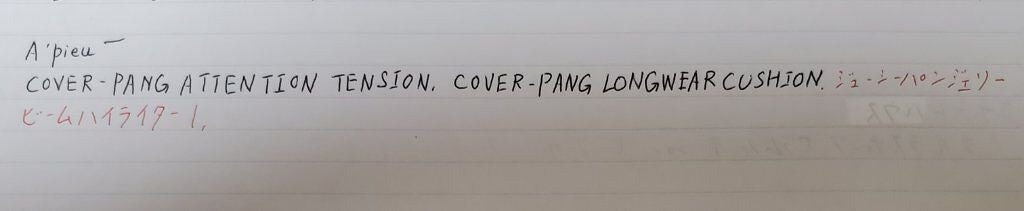 A'pieu ー
COVER-PANG ATTENTION TENSION. COVER-PANG LONGWEAR CUSHION. ジューシーパンジェリー
ビームハイライター1,